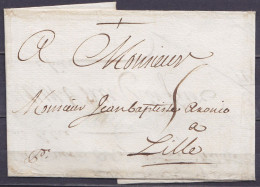 A Monsieur
Monsieur Jean baptiste
a
Lille